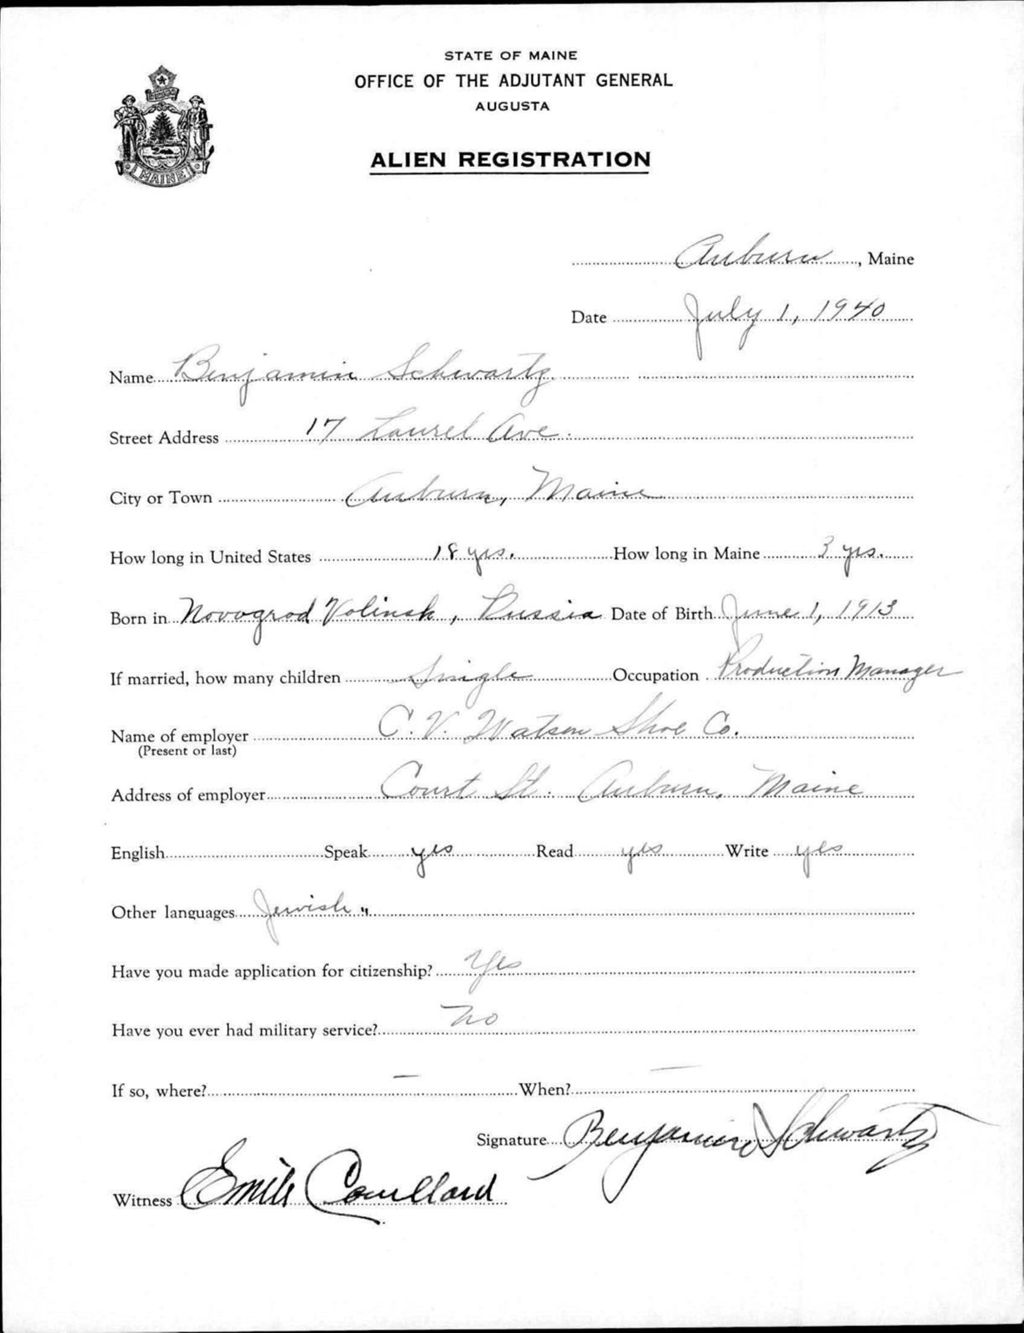 STATE OF MAINE
OFFICE OF THE ADJUTANT GENERAL
AUGUSTA
ALIEN REGISTRATION
MAINE
Auburn, Maine
Date July 1, 1940
Name Benjamin Schwartz
Street Address 17 Laurel Ave.
City or Town Auburn, Maine
How long in United States 18 yrs. How long in Maine 3 yrs.
Born in Novogrod Volinsk, Russia Date of Birth June 1, 1913
If married, how many children Single Occupation Production Manager
Name of employer C. V. Watson Shoe Co.
(Present or last)
Address of employer Court St. Auburn, Maine
English Speak yes Read yes Write yes
Other languages Jewish "
Have you made application for citizenship? Yes
Have you ever had military service? No
If so, where? — When? —
Signature Benjamin Schwartz
Witness Emile Couillard